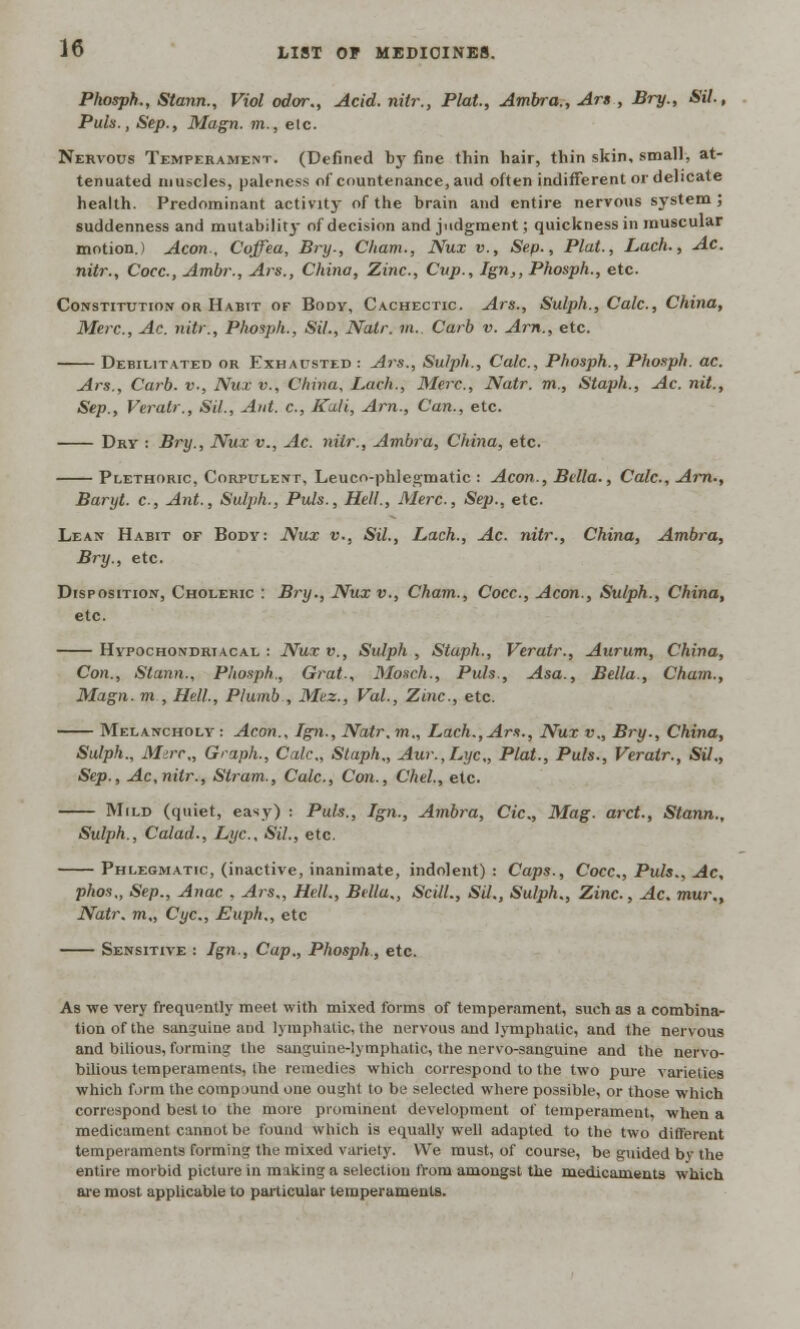 16
LIST OF MEDICINES.
Phosph., Stann., Viol odor., Acid. nitr., Plat., Ambra., Ars , Bry., Sil.,
Puls., Sep., Magn. m., etc.
Nervous Temperament. (Defined by fine thin hair, thin skin, small, at-
tenuated muscles, paleness of countenance, and often indifferent or delicate
health. Predominant activity of the brain and entire nervous system ;
suddenness and mutability of decision and judgment ; quickness in muscular
motion.) Acon., Coffea, Bry., Cham., Nux v., Sep., Plat., Lach., Ac.
nitr., Cocc., Ambr., Ars., China, Zinc., Cup., Ign,, Phosph., etc.
Constitution or Habit of Body, Cachectic. Ars., Sulph., Calc., China,
Merc., Ac. nitr., Phosph., Sil., Natr. m.. Carb v. Arn., etc.
—— Debilitated or Exhausted : Ars., Sulph., Calc., Phosph., Phosph. ac.
Ars., Carb. v., Nux v., China, Lach., Merc., Natr. m., Staph., Ac. nit.,
Sep., Veratr., Sil., Ant. c., Kali, Arn., Can., etc.
—— Dry : Bry., Nux v., Ac. nitr., Ambra, China, etc.
—— Plethoric, Corpulent, Leuco-phlegmatic : Acon., Bella., Calc., Arn.,
Baryt. c., Ant., Sulph., Puls., Hell., Merc., Sep., etc.
Lean Habit of Body: Nux v., Sil., Lach., Ac. nitr., China, Ambra,
Bry., etc.
Disposition, Choleric : Bry., Nux v., Cham., Cocc., Acon., Sulph., China,
etc.
—— Hypochondriacal : Nux v., Sulph , Staph., Veratr., Aurum, China,
Con., Stann., Phosph., Grat., Mosch., Puls., Asa., Bella., Cham.,
Magn. m , Hell., Plumb , Mez., Val., Zinc., etc.
—— Melancholy : Acon., Ign., Natr. m., Lach., Ars., Nux v., Bry., China,
Sulph., Merc,, Graph., Calc., Staph., Aur., Lyc,, Plat., Puls., Veratr., Sil.,
Sep., Ac, nitr., Stram., Calc., Con., Chel., etc.
—— Mild (quiet, easy) : Puls., Ign., Ambra, Cic., Mag. arct., Stann.,
Sulph., Calad., Lyc., Sil., etc.
—— Phlegmatic, (inactive, inanimate, indolent) : Caps., Cocc., Puls., Ac,
phos,, Sep., Anac . Ars., Hell., Bella., Scill., Sil., Sulph., Zinc., Ac. mur.,
Natr. m., Cyc., Euph., etc
—— Sensitive : Ign., Cap., Phosph , etc.
As we very frequently meet with mixed forms of temperament, such as a combina-
tion of the sanguine and lymphatic, the nervous and lymphatic, and the nervous
and bilious, forming the sanguine-lymphatic, the nervo-sanguine and the nervo-
bilious temperaments, the remedies which correspond to the two pure varieties
which form the compound one ought to be selected where possible, or those which
correspond best to the more prominent development of temperament, when a
medicament cannot be found which is equally well adapted to the two different
temperaments forming the mixed variety. We must, of course, be guided by the
entire morbid picture in making a selection from amongst the medicaments which
are most applicable to particular temperaments.